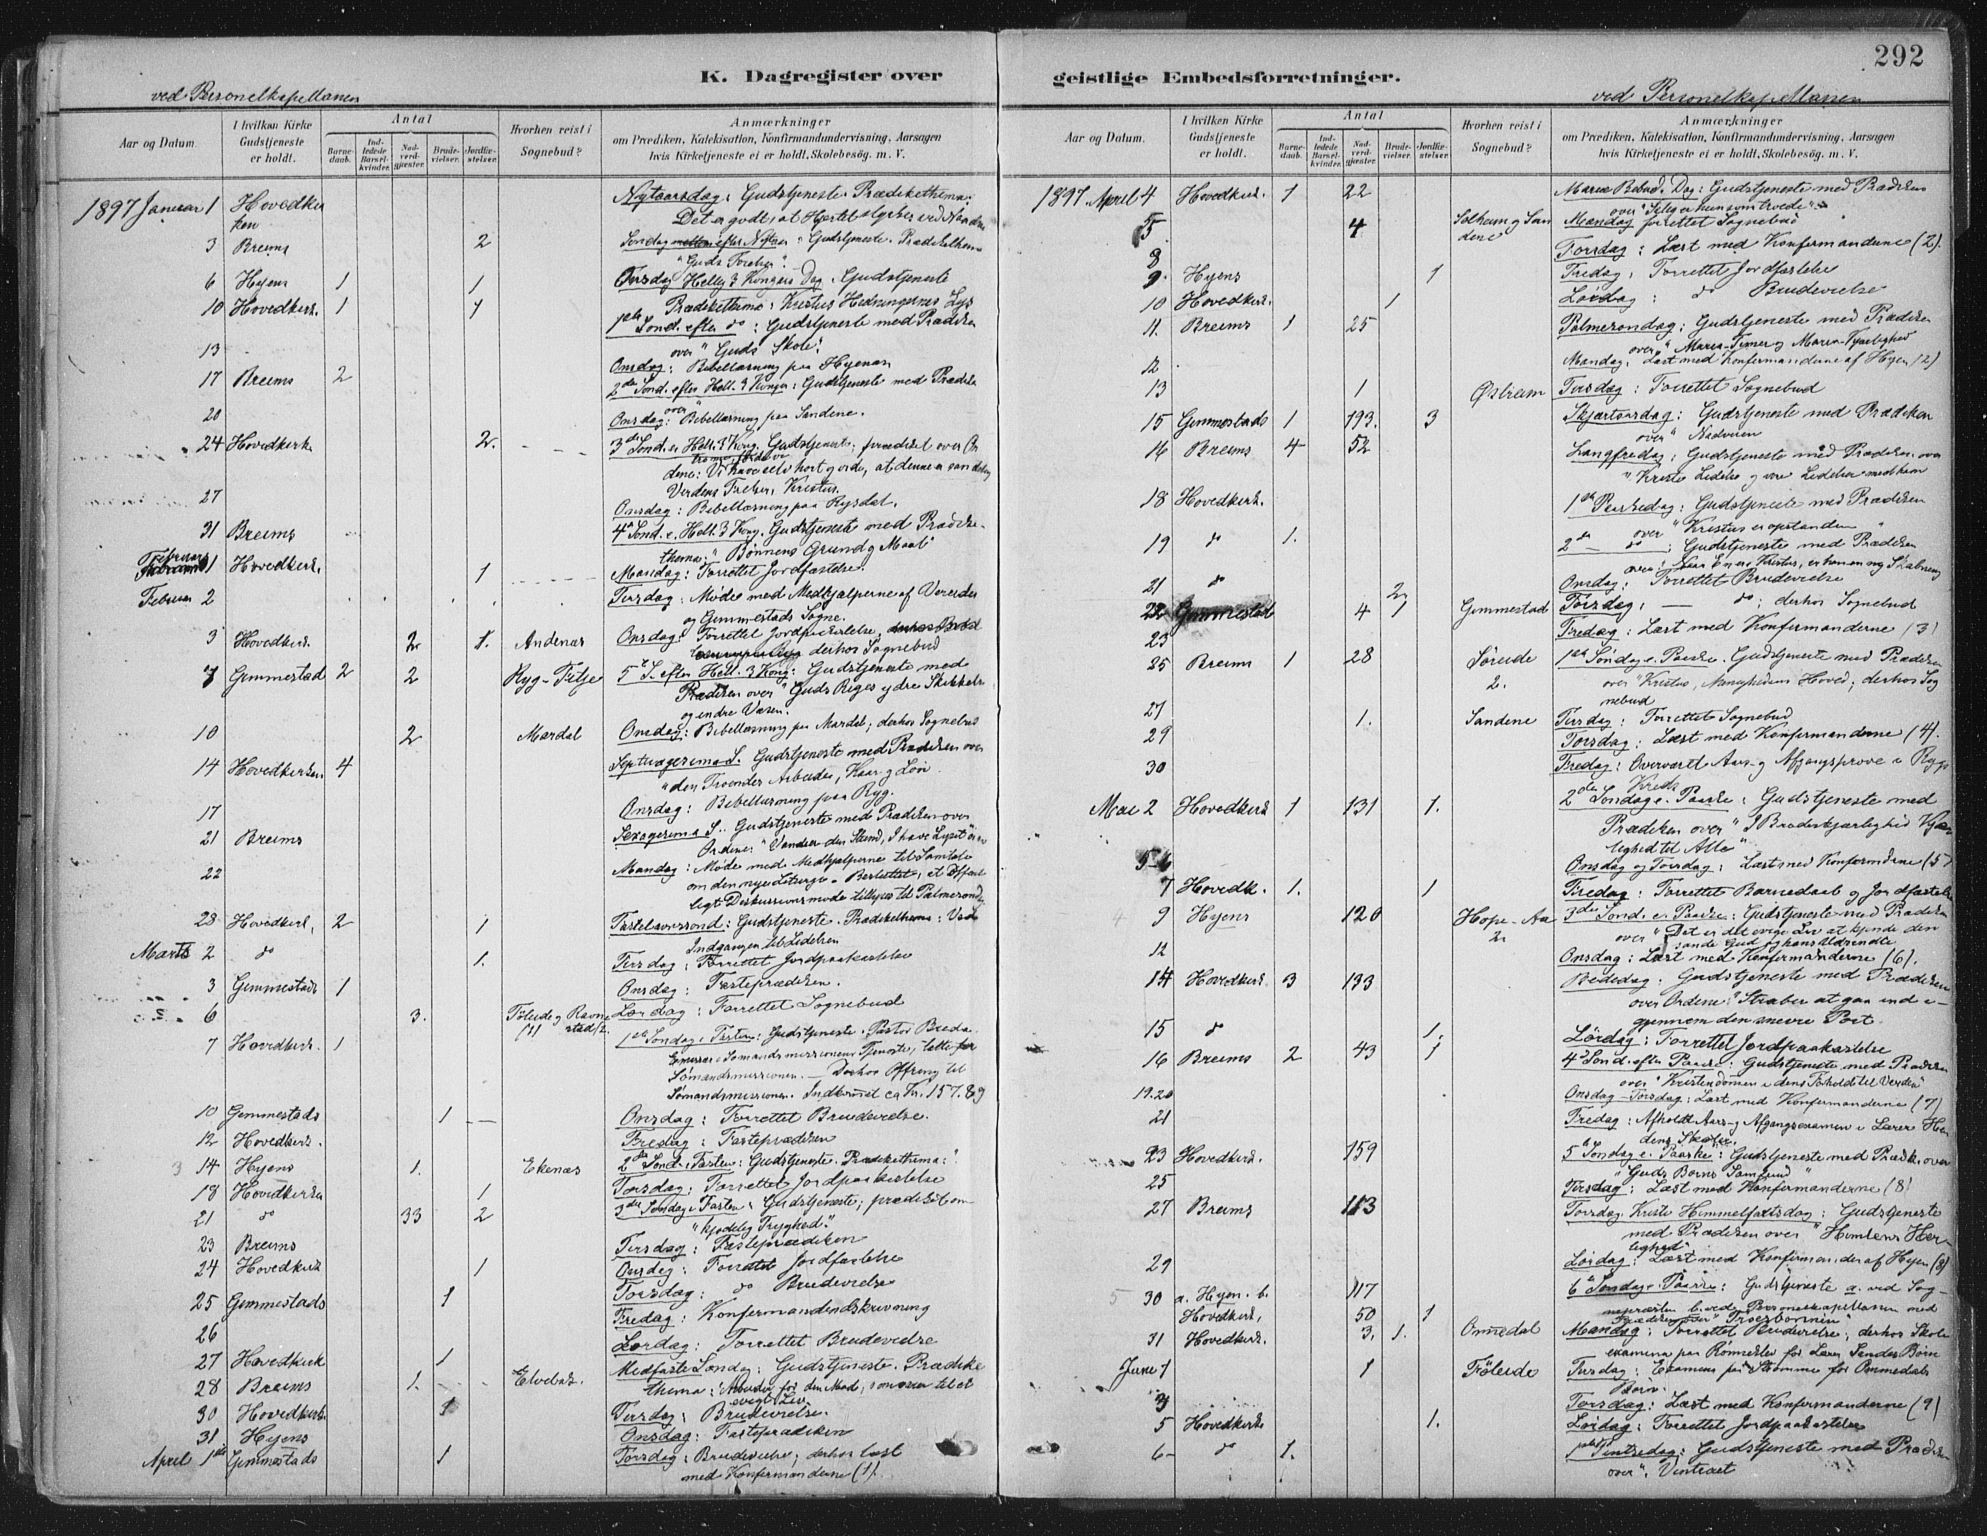 292
K. Dagregister over
geistlige Embedsforretninger.
ved Personelkapellanen
Aar og Datum.
I hvilken Kirke Gudstjeneste er holdt.
Antal
Barnedaab.
Indledede Barselkvinder.
Nadverdgjester.
Brudevielser.
Jordfæstelser.
Hvorhen reist i Sognebud?
Anmærkninger
om Prædiken, Katekisation, Konfirmandundervisning, Aarsagen
hvis Kirketjeneste ei er holdt, Skolebesøg. m. V.
1897 Januar 1 Hovedkirken Nytaarsdag: Gudstjeneste. Prædikethema:
Det er godt, at Hjertet styrkes ved Naaden
3 Breims 2 Søndag efter Nytaar: Gudstjeneste. Prædikethema
6 Hyens 1 1 Onsdag Hellig 3 Kongers Dag. Gudstjeneste
Prædikethema: Kristus Hedningernes Lys
10 Hovedkirk. 1 1ste Sønd. efter do: Gudstjeneste med Prædiken
over "Guds Skole".
13 Onsdag: Bibellæsning paa Hyenæs
17 Breims 2 2den Sønd. efter Hell. 3 Konger: Gudstjeneste med Prædiken
over "
20 Onsdag: Bibellæsning paa Sandene.
24 Hovedkirk 2. 3die Sønd. e. Hell. 3 Kong. Gudstjeneste; prædiket over Or
dene: Vi have selv hørt og vide, at denne er sandelig
Verdens Frelser, Kristus.
27 Onsdag: Bibellæsning paa Rygdal.
31 Breims 4de Sønd. e. Hell. 3 Kong. Gudstjeneste med Prædike-
thema: "Bønnens Grund og Maal"
Februar 1 Hovedkirk. 1 Mandag: Forrettet Jordfæstelse.
Februar 2 Tirsdag: Møde med Medhjælperne af Vereides
og Gimmestads Sogne.
3 Hovedkirk. 2 1. Andenæs Onsdag: Forrettet Jordpaakastelse,
derhos Sognebud
7 Gimmestad 2 2 Ryg-Fitje 5te S. efter Hell. 3 Kong: Gudstjeneste med
Prædiken over "Guds Riges ydre Skikkelse
og indre Væsen".
10 2 Mardal Onsdag: Bibellæsning paa Mardal; derhos Sognebud
14 Hovedkirken 4 Septuagesima S. Gudstjeneste med Prædiken over
"den Troendes Arbeide, Kaar og Løn.
17 Onsdag: Bibellæsning paa Ryg.
21 Breims Sexagesima S.: Gudstjeneste med Prædiken over
Ordene: "Vandrer den Stund, I have Lyset"
22 Mandag: Møde med Medhjælperne til Samtale
om den nye Liturgi. Besluttet, at Offent
ligt Diskussionsmøde tillyses til Palmesøndag
28 Hovedkirk. 2 1 Fastelavnssønd: Gudstjeneste. Prædikethema: Ved
Indgangen til Lidelsen
Marts 2 do 1. Tirsdag: Forrettet Jordpaakastelse
3 Gimmestads 1 Onsdag: Fasteprædiken.
6 3. Føleide og Ravne stad/2 Lørdag: Forrettet Sognebud
7 Hovedkirk. 1 1ste Søndag i Fasten: Gudstjeneste. Pastor Breda.
Emissær i Sømandsmissionens Tjeneste, talte for
Sømandsmissionen. — Derhos Offring til
Sømandsmissionen. Indkomst ca Kr. 157.89
10 Gimmestads 1 Onsdag: Forrettet Brudevielse.
12 Hovedkirk. Fredag: Fasteprædiken
14 Hyens 1. Ekenæs 2den Sønd. i Fasten: Gudstjeneste. Prædikethema: "
18 Hovedkirken 1 Torsdag: Forrettet Jordpaakastelse
21 do 33 2 3die Søndag i Fasten: Gudstjeneste; prædiket om
"kjødelig Tryghed".
23 Breims Tirsdag: Fasteprædiken
24 Hovedkirk 1 Onsdag: Forrettet Jordfæstelse
25 Gimmestads 1 Torsdag: do Brudevielse
26 Fredag: Konfirmandindskrivning
27 Hovedkirk 1 Lørdag: Forrettet Brudevielse
28 Breims 1. Elvebak. Midfaste Søndag: Gudstjeneste. Prædike
thema: Arbeider for den Mad, som varer til et
evigt Liv
30 Hovedkirk. 1 Tirsdag: Brudevielse.
31 Hyens Onsdag: Fasteprædiken
April 1ste Gimmestads 1 Torsdag: Brudevielse; derhos læst
med Konfirmanderne (1).
ved Personelkapellanen
Aar og Datum.
I hvilken Kirke Gudstjeneste er holdt.
Antal
Barnedaab.
Indledede Barselkvinder.
Nadverdgjester.
Brudevielser.
Jordfæstelser.
Hvorhen reist i Sognebud?
Anmærkninger
om Prædiken, Katekisation, Konfirmandundervisning, Aarsagen
hvis Kirketjeneste ei er holdt, Skolebesøg. m. V.
1897 April 4 Hovedkirk. 1 22 Mariæ Bebud. Dag: Gudstjeneste med Prædiken
over "Salig er hun som troede".
5 4 Solheim og Sandene Mandag forrettet Sognebud
8 Torsdag: Læst med Konfirmanderne (2).
9 Hyens 1 Fredag: Forrettet Jordfæstelse
10 Hovedkirk. 1 Lørdag: do Brudevielse
11. Breims 1 25 Palmesøndag: Gudstjeneste med Prædiken
over "Maria-Timer og Maria-Kjærlighed
12 Mandag: Læst med Konfirmanderne af Hyen (2)
13 1 Østrem Tirsdag: Forrettet Sognebud
15 Gimmestads 1 193. 3 Skjærtorsdag: Gudstjeneste med Prædiken
over "Nadveren
16 Breims 4 52 Langfredag: Gudstjeneste med Prædiken over
"Kristi Lidelse og vore Lidelser med ham
18 Hovedkirk. 1ste Paaskedag: Gudstjeneste med Prædiken
over "Kristus er opstanden"
19 do 1. 2den — do: Gudstjeneste med Prædiken
over: Naar En er i Kristus, er han en ny Skabning
21 do 2 Onsdag: Forrettet Brudevielse
22 Gimmestad 4 1 Gimmestad Torsdag: — do; derhos Sognebud
23 Fredag: Læst med Konfirmanderne (3)
25 Breims 1 28 Søreide 2. 1ste Søndag e. Paaske. Gudstjeneste med Prædiken
over "Kristus, Menighedens Hoved; derhos Sog
nebud
27 1. Sandene Tirsdag: Forrettet Sognebud
29 Torsdag: Læst med Konfirmanderne (4).
30 Fredag: Overværet Aars- og Afgangsprøve i Rygs
Kreds
Mai 2 Hovedkirk 1 131 1. 2den Søndag e. Paaske: Gudstjeneste med
Prædiken over "I Broderkjærlighed Kjær
lighed til Alle"
5-6 Onsdag og Torsdag: Læst med Konfirmanderne (5)
7 Hovedk. 1. 1 Fredag: Forrettet Barnedaab og Jordfæstelse
9 Hyens 120 Hope-Aa 2 3die Sønd. e. Paaske: Gudstjeneste med Prædiken
over "Det er det evige Liv at kjende den
sande Gud og hans Udsendte
12 Onsdag: Læst med Konfirmanderne (6).
14 Hovedkirk. 3 133 Bededag: Gudstjeneste med Prædiken
over Ordene: Stræber at gaa ind i-
gjennem den snevre Port.
15 do 1. Lørdag: Forrettet Jordpaakastelse
16 Breims 2 43 1 4de Sønd. efter Paaske: Gudstjeneste med Prædiken
over "Kristendommen i dens Forhold til Verden"
19.20 Onsdag-Torsdag: Læst med Konfirmanderne (7)
21 Fredag: Afholdt Aars- og Afgangsexamen i Lærer
Skoler.
23 Hovedkirk. 159 5te Søndag e. Paaske: Gudstjeneste med Prædik. over
"Guds Børns Samfund"
25 Tirsdag: Læst med Konfirmanderne (8)
27 Breims 113 Torsdag. Kristi Himmelfartsdag: Gudstjeneste
med Prædiken over "Himlens Her-
lighed".
29 Lørdag: Læst med Konfirmander af Hyen (8)
30 a. Hyen. b. 117 6te Søndag e. Paaske: Gudstjeneste a. ved Sog-
Hovedkirk. 50 1 nepræsten b. ved Personelkapellanen med
Prædiken over "Troesbønnen"
31 Hovedkirk. 3. 1. Ommedal Mandag: Forrettet Brudevielse; derhos Skole
examina paa Rønneklev for Lærer Sandes Børn
Juni 1 1 Føleide Tirsdag: Examens paa Stømme for Ommedals
Børn.
3 Torsdag: Læst med Konfirmanderne (9)
5 Hovedkirk 1. Lørdag: Forrettet Jordpaakastelse
6 do 1. 1ste Pintsedag: Gudstjeneste med Prædiken
over "